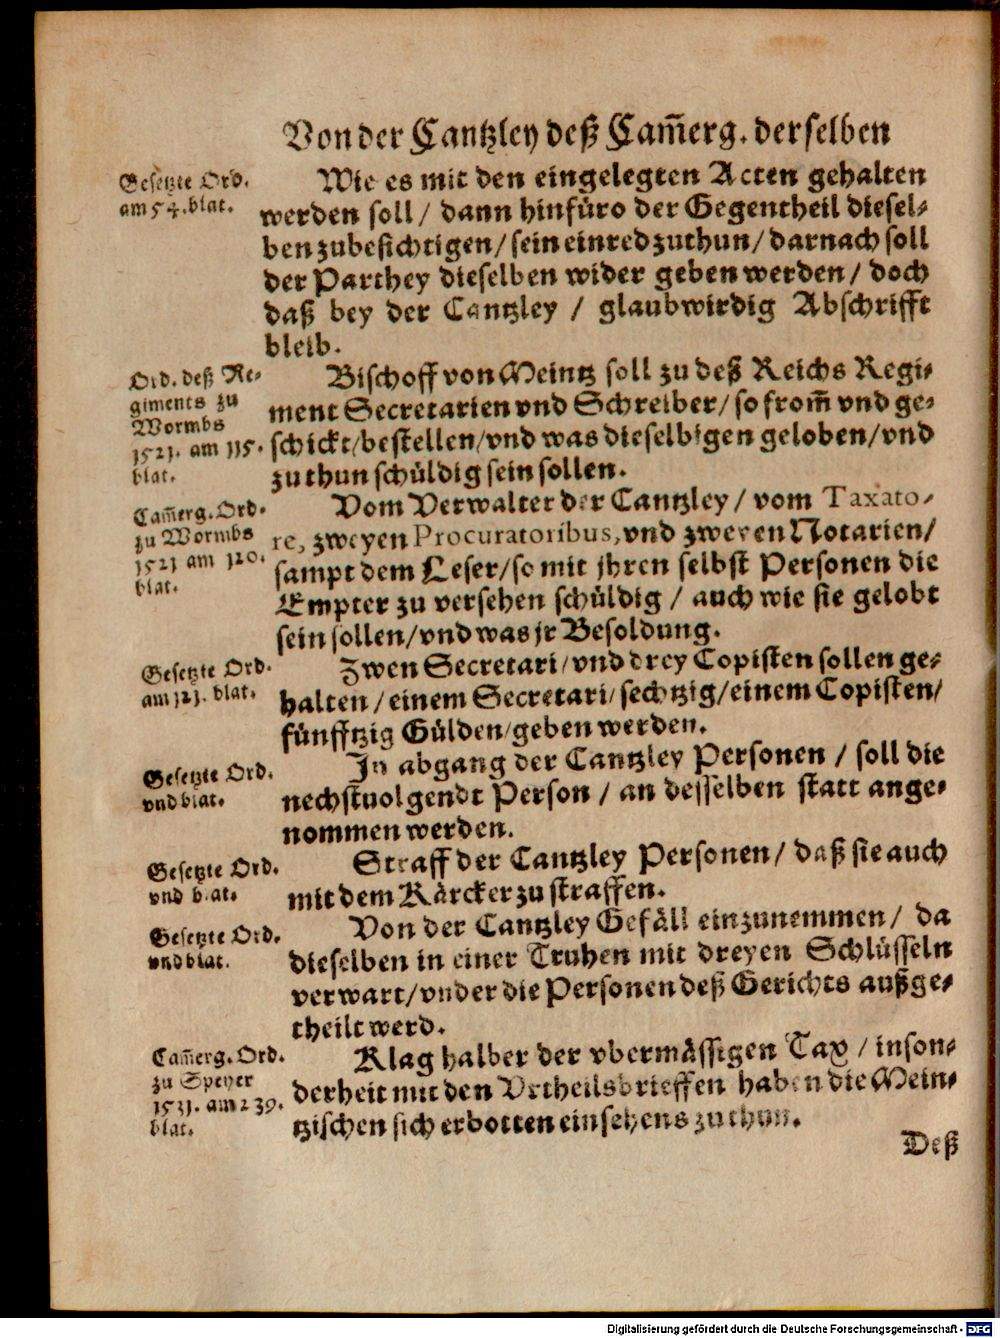 Von der Cantzley deß Cam̃erg. derselben
Gesetzte Ord.
am 54. blat.
Wie es mit den eingelegten Acten gehalten
werden soll / dann hinfüro der Gegentheil diesel-
ben zubesichtigen / sein einred zuthun / darnach soll
der Parthey dieselben wider geben werden / doch
daß bey der Cantzley / glaubwirdig Abschrifft
bleib.
Ord. deß Re-
giments zu
Wormbs
1521. am 115.
blat.
Bischoff von Meintz soll zu deß Reichs Regi-
ment Secretarien vnd Schreiber / so from̃ vnd ge-
schickt / bestellen / vnd was dieselbigen geloben / vnd
zuthun schüldig sein sollen.
Cam̃erg. Ord.
zu Wormbs
1521 am 120.
blat.
Vom Verwalter der Cantzley / vom Taxato-
re, zweyen Procuratoribus, vnd zweyen Notarien /
sampt dem Leser / so mit jhren selbst Personen die
Empter zu versehen schüldig / auch wie sie gelobt
sein sollen / vnd was jr Besoldung.
Gesetzte Ord.
am 121. blat.
Zwen Secretari / vnd drey Copisten sollen ge-
halten / einem Secretari / sechtzig / einem Copisten /
fünfftzig Gülden / geben werden.
Gesetzte Ord.
vnd blat.
In abgang der Cantzley Personen / soll die
nechstuolgendt Person / an desselben statt ange-
nommen werden.
Gesetzte Ord.
vnd blat.
Straff der Cantzley Personen / daß sie auch
mit dem Kärcker zu straffen.
Gesetzte Ord.
vnd blat.
Von der Cantzley Gefäll einzunemmen / da
dieselben in einer Truhen mit dreyen Schlüsseln
verwart / vnder die Personen deß Gerichts außge-
theilt werd.
Cam̃erg. Ord.
zu Speyer
1531. am 239.
blat.
Klag halber der vbermässigen Tax / inson-
derheit mit den Vrtheilsbrieffen haben die Mein-
tzischen sich erbotten einsehens zu thun.
Deß
Digitalisierung gefördert durch die Deutsche Forschungsgemeinschaft - DFG